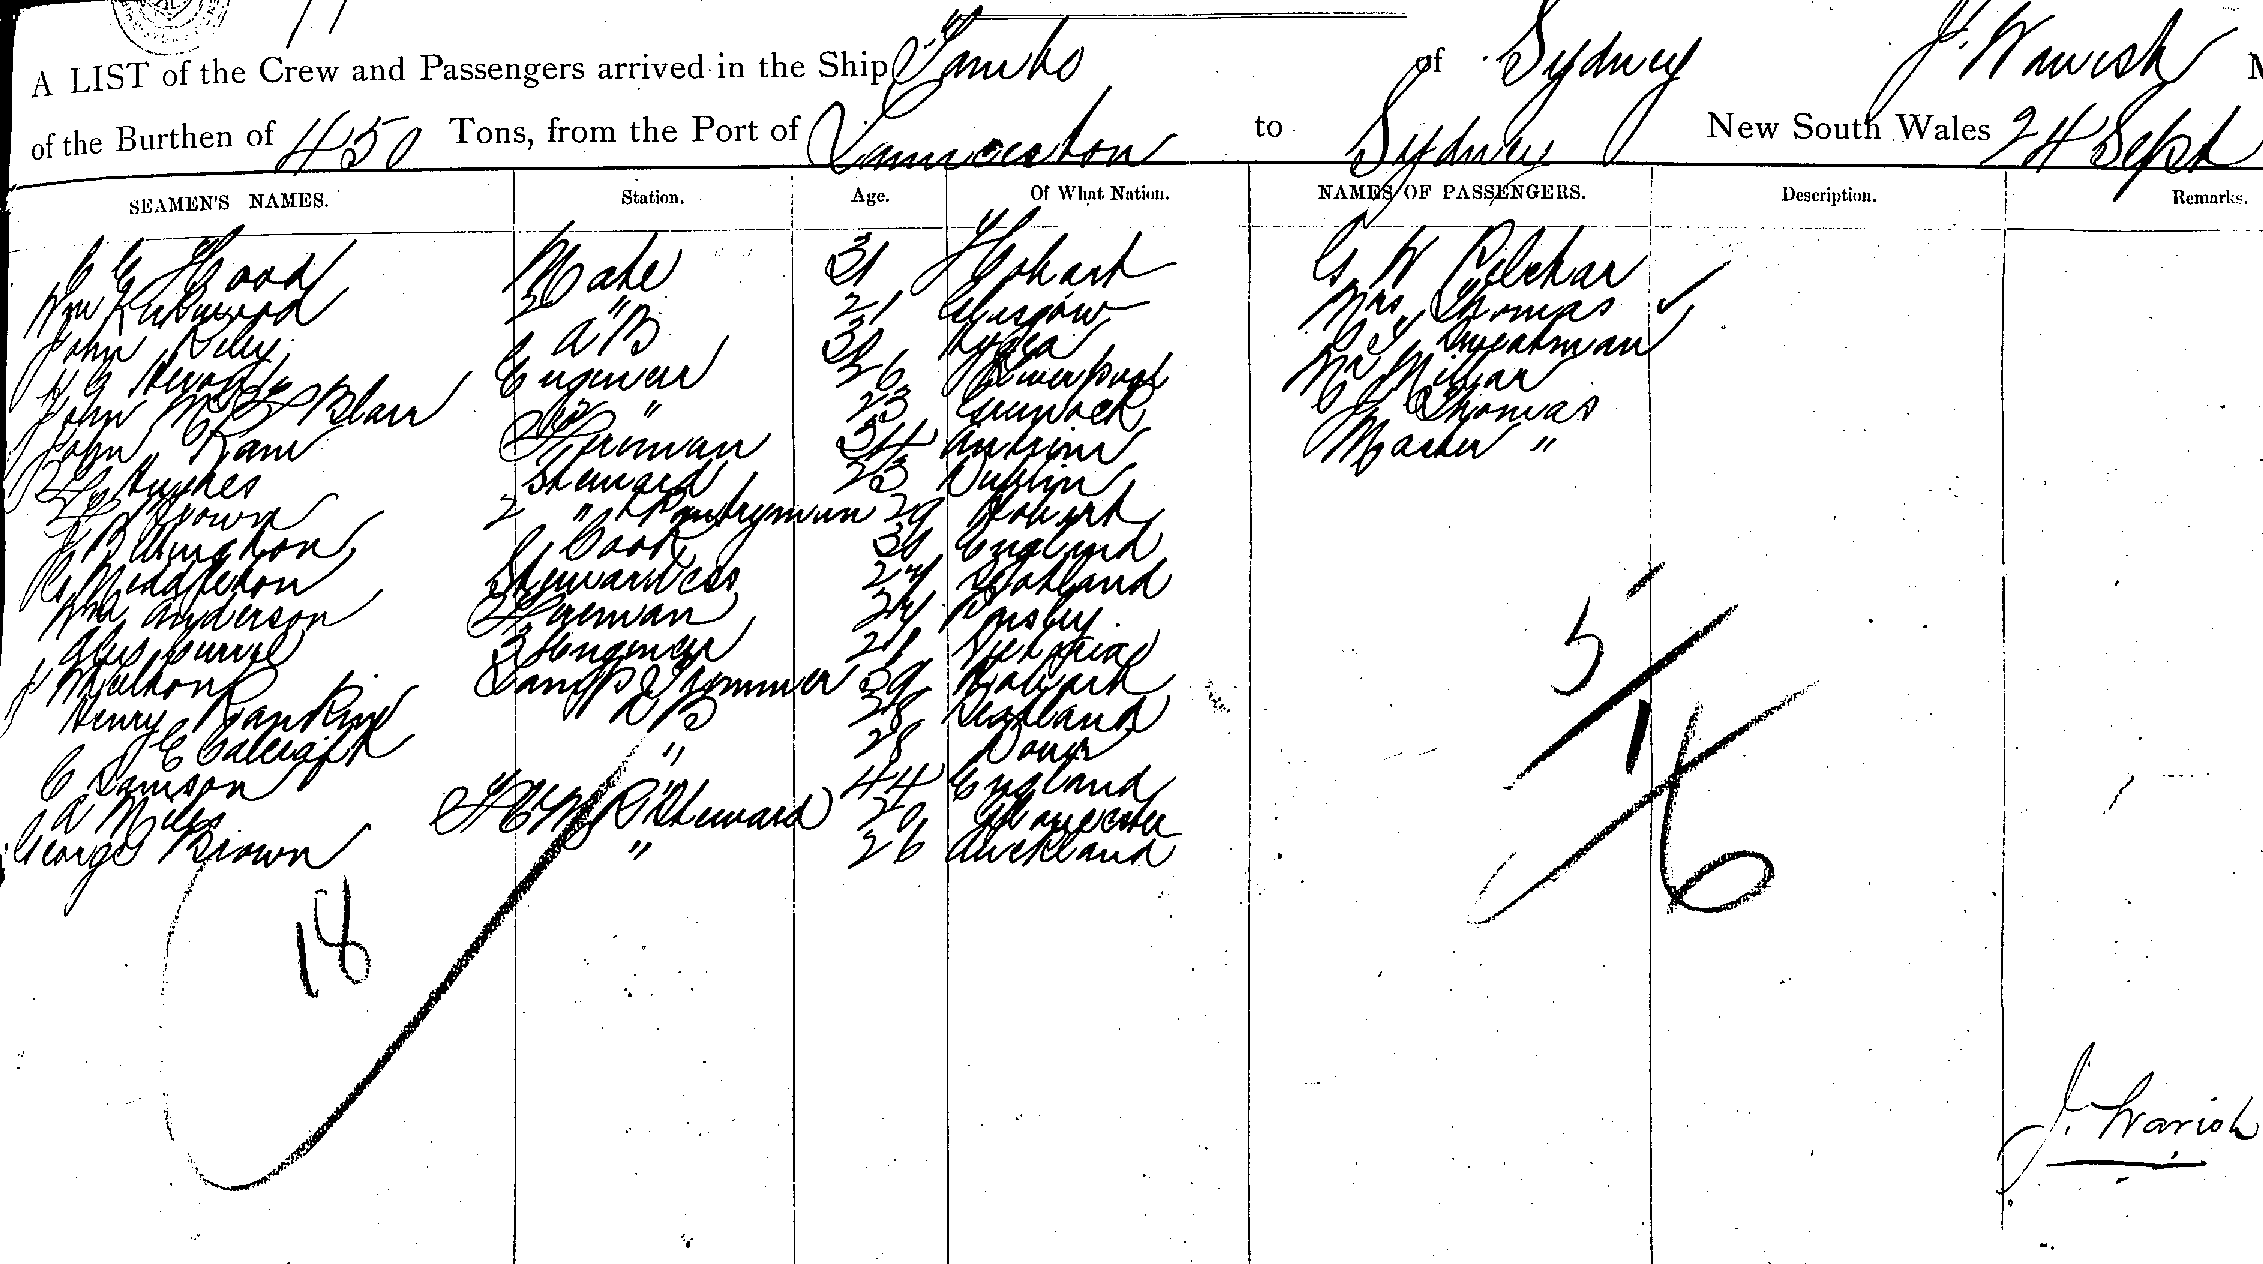 A LIST of the Crew and Passengers arrived in the Ship Tambo of Sydney J. Warish
of the Burthen of 450 Tons, from the Port of Launceston to Sydney New South Wales 24 Sept
SEAMEN'S NAMES. Station. Age. Of What Nation. NAMES OF PASSENGERS. Description. Remarks.
Hood Mate 31 Hobart G W Pilcher
Wm Kirkwood 2 " 21 Glasgow Mrs Thomas
John Riley AB Sweatman
Engineer 26 Liverpool Mr Millar
John Blair 2 " 23 Greenock Thomas
John Kane Fireman 34 Antrim Master "
Hughes Steward 23 Dublin
Brown 2 " & Pantryman 29 Hobart
Billington Cook England
Middleton Stewardess Scotland
Wm Anderson Fireman Paisley
Alex Currie 3 Engineer 21 Victoria
J Walton Lamp Trimmer 39 Hobart
Henry Rankine AB 28 Scotland
" 28 Dover
C Samson " 44 England
A Miles Steward 20 Gloucester
George Brown " 26 Auckland
5
1
6
18
J. Warish